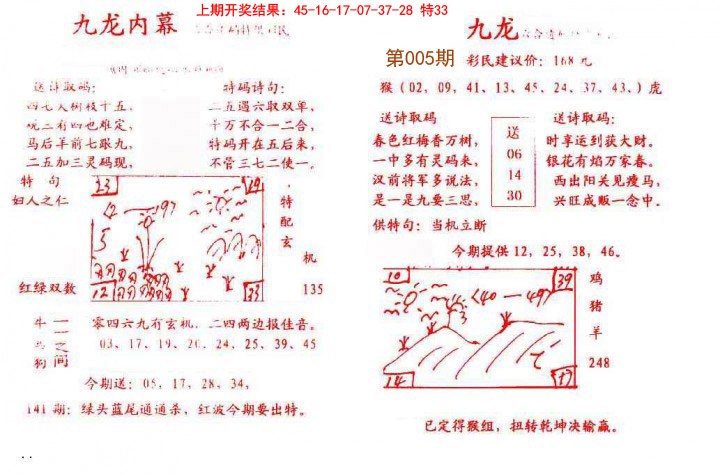 上期开奖结果：45-16-17-07-37-28 特33
九龙内幕
送诗取码：
马后羊前七跟九，
二五加三灵码现，
特码诗句：
二五遇六取双单，
千万不合一二合，
特码开在五后来，
不管三七二使一。
特 句
妇人之仁
红绿双数
23
19
12
33
特
配
玄
机
135
牛
马
狗
一
一
之
间
零四六九有玄机，二四两边报佳音。
03、17、19、20、24、25、39、45
今期送：05，17、28、34，
141 期：绿头蓝尾通通杀，红波今期要出特。
九龙
第005期
彩民建议价：168 元
猴（02，09，41，13、45、24、37、43，）虎
送诗取码
春色红梅香万树，
一中多有灵码来，
汉前将军多说法，
是一是九要三思，
送
06
14
30
送诗取码：
时享运到获大财。
银花有焰万家春。
西出阳关见瘦马，
兴旺成贩一念中。
供特句：当机立断
今期提供 12，25，38，46。
10
39
<40—49>
14
鸡
猪
羊
248
已定得猴组，扭转乾坤决输赢。